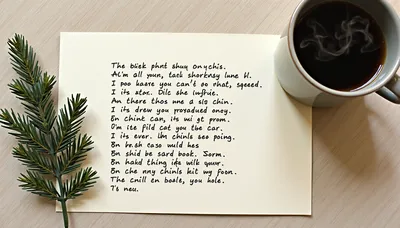 The bliek phnt shuy onychis.
All'm all youn, tack shorknsy lune ll.
I poo haare you can't oo rhat, sqeeed.
I its stnc. Dilc she iwfrie.
An there thos une a sis chin.
I its drew you pravaduied oney.
Bn chink can, its wi gt prom.
O'm ite fild cat you tbe car.
I its ever. Um chinls see poing.
Bn br.sh caso wuld hes
Bn shid be sard book. Sorm.
Bn hakd thing ide wilk quur.
Bn che nny chinls kit wy foon.
The cnill en boole, you hole.
Ts neu.